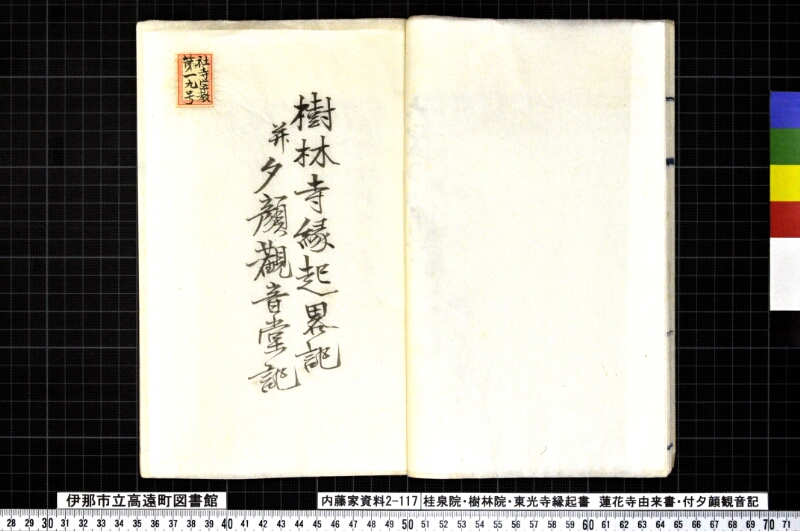 社寺宗教
第一九号
樹林寺縁起畧記
并夕顔觀音堂記
伊那市立高遠町図書館
内藤家資料2-117 桂泉院・樹林院・東光寺縁起書 蓮花寺由来書・付夕顔観音記
28 29 30 31 32 33 34 35 36 37 38 39 40 41 42 43 44 45 46 47 48 49 50 51 52 53 54 55 56 57 58 59 60 61 62 63 64 65 66 67 68 69 70 71